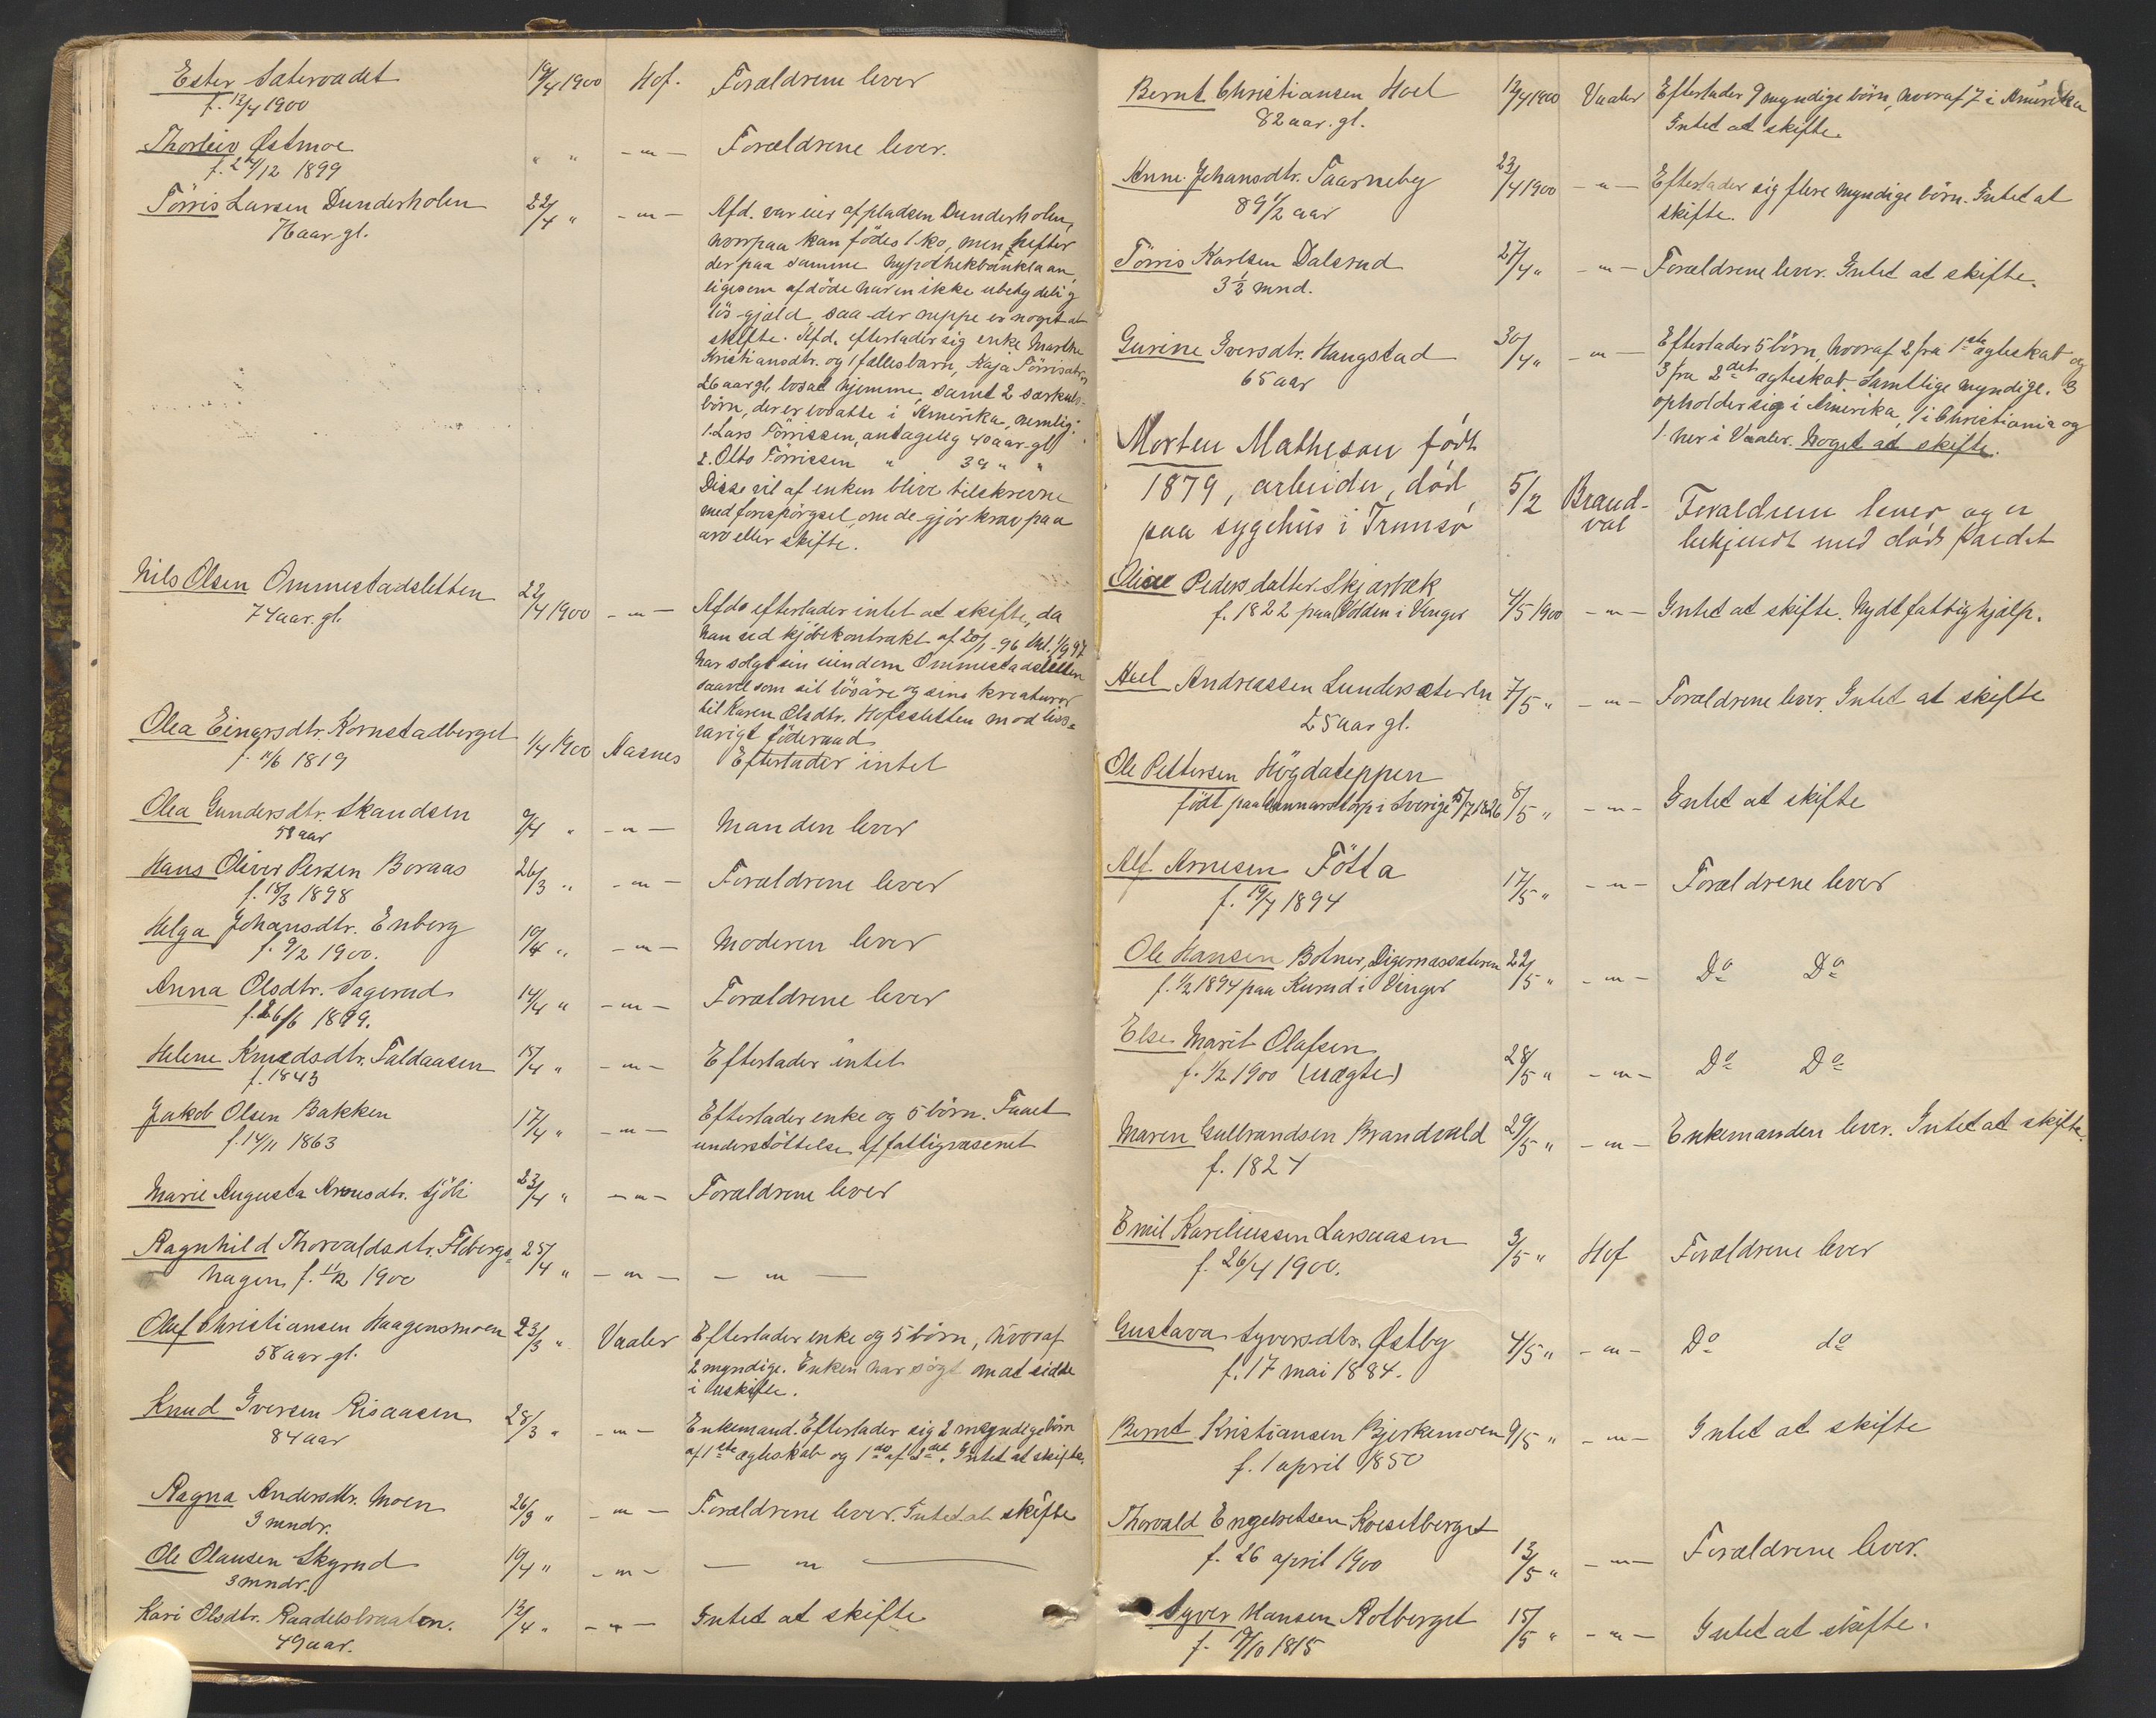 EsterÆtervadet 19/4 1900 Hof. Forældrene lever
f. 12/4 1900
Thorleiv Østmoe " " -"- Forældrene lever.
f. 24/12 1899
Törris Larsen Dunderholen 22/4 " -"- Afd. var eier af pladsen Dunderholen,
76 aar gl. hvorpaa kan födes 1 ko, men hefter
der paa samme hypothekbanklaan,
ligesom afdöde har en ikke ubetydelig
lös gjæld, saa der neppe er noget at
skifte. Afd. efterlader sig enke Marthe
Kristiansdtr. og 1 fællesbarn, Kaja Törrisdtr,
26 aar gl, bosat hjemme, samt 2 særkuls-
börn, der er bosatte i Amerika, nemlig:
1. Lars Törrissen, antagelig 40 aar gl
2. Otto Törrissen " 39 " "
Disse vil af enken blive tilskrevne
med forespörgsel, om de gjör krav paa
arv eller skifte.
Nils Olsen Ommestadsletten 22/4 1900 -"- Afdö efterlader intet at skifte, da
74 aar. gl. han ved kjöbekontrakt af 20/1 - 96 thl. 1/9 97
har solgt sin eiendom Ommestadsletten
saavel som sit lösöre og sine kreaturer
til Karen Olsdtr. Hofsletten mod livs-
varigt föderaad
Olea Einarsdtr. Kornstadberget 1/4 1900 Aasnes Efterlader intet
f. 11/6 1819
Olea Gundersdtr. Skaudsen 9/4 " -"- Manden lever
58 aar
Hans Oliver Persen Boraas 26/3 " -"- Forældrene lever
f. 18/3 1898
Helga Johansdtr. Enberg 10/4 " -"- Moderen lever
f. 9/2 1900.
Anna Olsdtr. Sagerud 14/4 " -"- Forældrene lever
f. 26/6 1899.
Helene Knudsdtr. Faldaasen 15/4 " -"- Efterlader intet
f. 1843
Jakob Olsen Bakken 17/4 " -"- Efterlader enke og 5 börn. Faaet
f. 14/11 1863 understöttelse af fattigvæsenet
Marie Augusta Arnesdtr. Sjöli 23/4 " -"- Forældrene lever
Ragnhild Thorvaldsdtr. Flobergs- 25/4 " -"- -"-
hagen f. 11/2 1900
Oluf Christiansen Haagensmoen 23/3 " Vaaler Efterlader enke og 5 börn, hvoraf
58 aar gl. 2 myndige. Enken har sögt om at sidde
i uskifte.
Knud Iversen Risaasen 28/3 " -"- Enkemand. Efterlader sig 2 myndige börn
84 aar af 1ste ægteskab og 1 do af 2det. Intet at skifte.
Ragna Andersdtr. Moen 26/3 " -"- Forældrene lever. Intet at skifte
9 mndr.
Ole Olausen Skyrud 10/4 " -"- -"-
3 mndr.
Kari Olsdtr. Raadelsbraaten. 12/4 " -"- Intet at skifte
49 aar.
Bernt Christiansen Hoel 12/4 1900 Vaaler Efterlader 9 myndige börn, hvoraf 7 i Amerika
82 aar. gl. Intet at skifte.
Anne Johansdtr. Taarneby 23/4 1900 -"- Efterlader sig flere myndige börn. Intet at
89 1/2 aar skifte.
Törris Karlsen Dalsrud 27/4 " -"- Forældrene lever. Intet at skifte.
3 1/2 mnd.
Gurine Iversdtr. Haugstad 30/4 " -"- Efterlader 5 börn, hvoraf 2 fra 1ste ægteskab og
65 aar 3 fra 2det ægteskab. Samtlige myndige. 3
opholder sig i Amerika, 1 i Christiania og
1 her i Vaaler. Noget at skifte.
Morten Matheson født
1879, arbeider, død 5/2 Brand- Forældrene lever og er
paa sygehus i Tromsø val bekjendt med døds faldet
Oline Pedersdatter Skjærbæk 4/5 1900 -"- Intet at skifte. Nydt fattighjælp.
f. 1822 paa Volden i Vinger
Axel Andreassen Lundersæteren 7/5 " -"- Forældrene lever. Intet at skifte
25 aar gl.
Ole Pettersen Högdateppen 8/5 " -"- Intet at skifte
födt paa Gunnarstorp i Sverige 5/7 1826
Alf Arnesen Fötta 17/5 " -"- Forældrene lever
f. 19/7 1894
Ole Hansen Botner, Digernæssæteren 22/5 " -"- Do Do
f. 1/2 1894 paa Kurud i Vinger
Else Marit Olafsen 28/5 " -"- Do Do
f. 1/2 1900 (uægte)
Maren Gulbrandsen Brandvald 29/5 " -"- Enkemanden lever. Intet at skifte.
f. 1824
Emil Kareliussen Larsaasen 3/5 " Hof Forældrene lever
f. 26/4 1900.
Gustava Syversdtr. Østby 4/5 " -"- Do do
f. 17 mai 1884.
Bernt Kristiansen Bjerkemoen 9/5 " -"- Intet at skifte
f. 1 april 1850
Thorvald Engebretsen Kvesetberget
f. 26 april 1900 13/5 " -"- Forældrene lever.
Syver Hansen Rotberget 15/5 " -"- Intet at skifte.
f. 19/10 1815